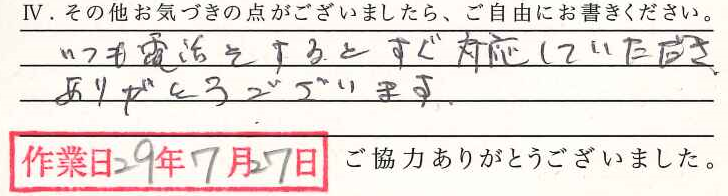 Ⅳ. その他お気づきの点がございましたら、ご自由にお書きください。
いつも電話をするとすぐ対応していただき
ありがとうございます。
作業日29年7月27日 ご協力ありがとうございました。